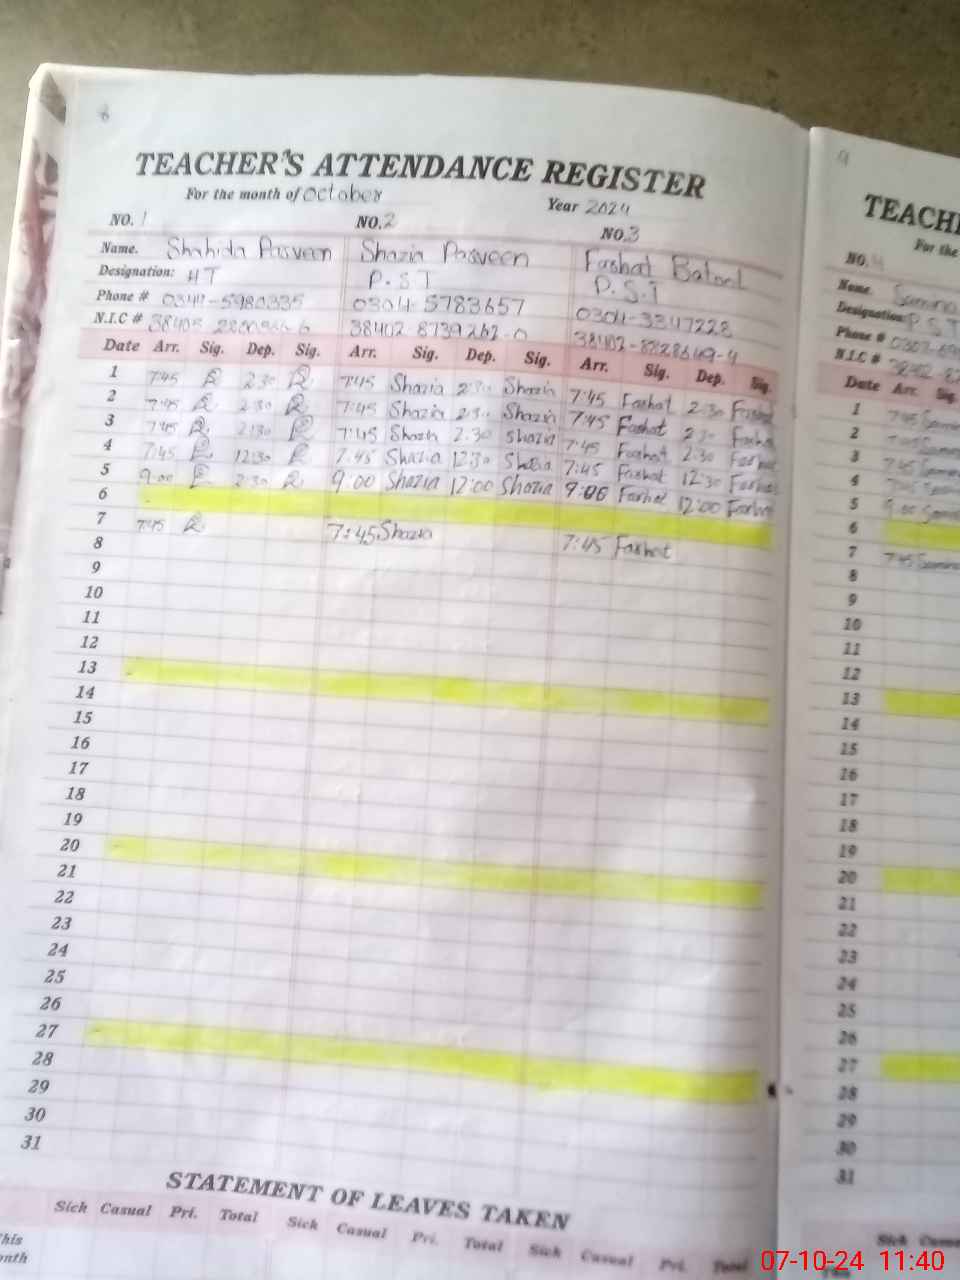 8
TEACHER'S ATTENDANCE REGISTER
For the month of October
Year 2024
NO. 1 NO.2 NO.3
Name. Shahida Parveen Shazia Parveen Farhat Batool
Designation: HT P.S.T P.S.T
Phone # 0304-5783657 0304-3347228
N.I.C # 38402-8739262-0 38402-8828649-4
Date Arr. Sig. Dep. Sig. Arr. Sig. Dep. Sig. Arr. Sig. Dep. Sig.
1 7:45 2:30 7:45 Shazia 2:30 Shazia 7:45 Farhat 2:30 Farhat
2 7:45 2:30 7:45 Shazia 2:30 Shazia 7:45 Farhat 2:30 Farhat
3 7:45 2:30 7:45 Shazia 2:30 Shazia 7:45 Farhat 2:30 Farhat
4 7:45 12:30 7:45 Shazia 12:30 Shazia 7:45 Farhat 12:30 Farhat
5 9:00 2:30 9:00 Shazia 12:00 Shazia 9:00 Farhat 12:00 Farhat
6
7 7:45 7:45 Shazia 7:45 Farhat
8
9
10
11
12
13
14
15
16
17
18
19
20
21
22
23
24
25
26
27
28
29
30
31
STATEMENT OF LEAVES TAKEN
Sich Casual Pri. Total Sich Casual Pri. Total Sich Casual Pri. Total
9
TEACH
For the
NO. 4
Name.
Designation: P.S.T
Phone #
N.I.C #
Date Arr. Sig.
1 7:45
2
3 7:45
4
5 9:00
6
7 7:45
8
9
10
11
12
13
14
15
16
17
18
19
20
21
22
23
24
25
26
27
28
29
30
31
Sich
07-10-24 11:40